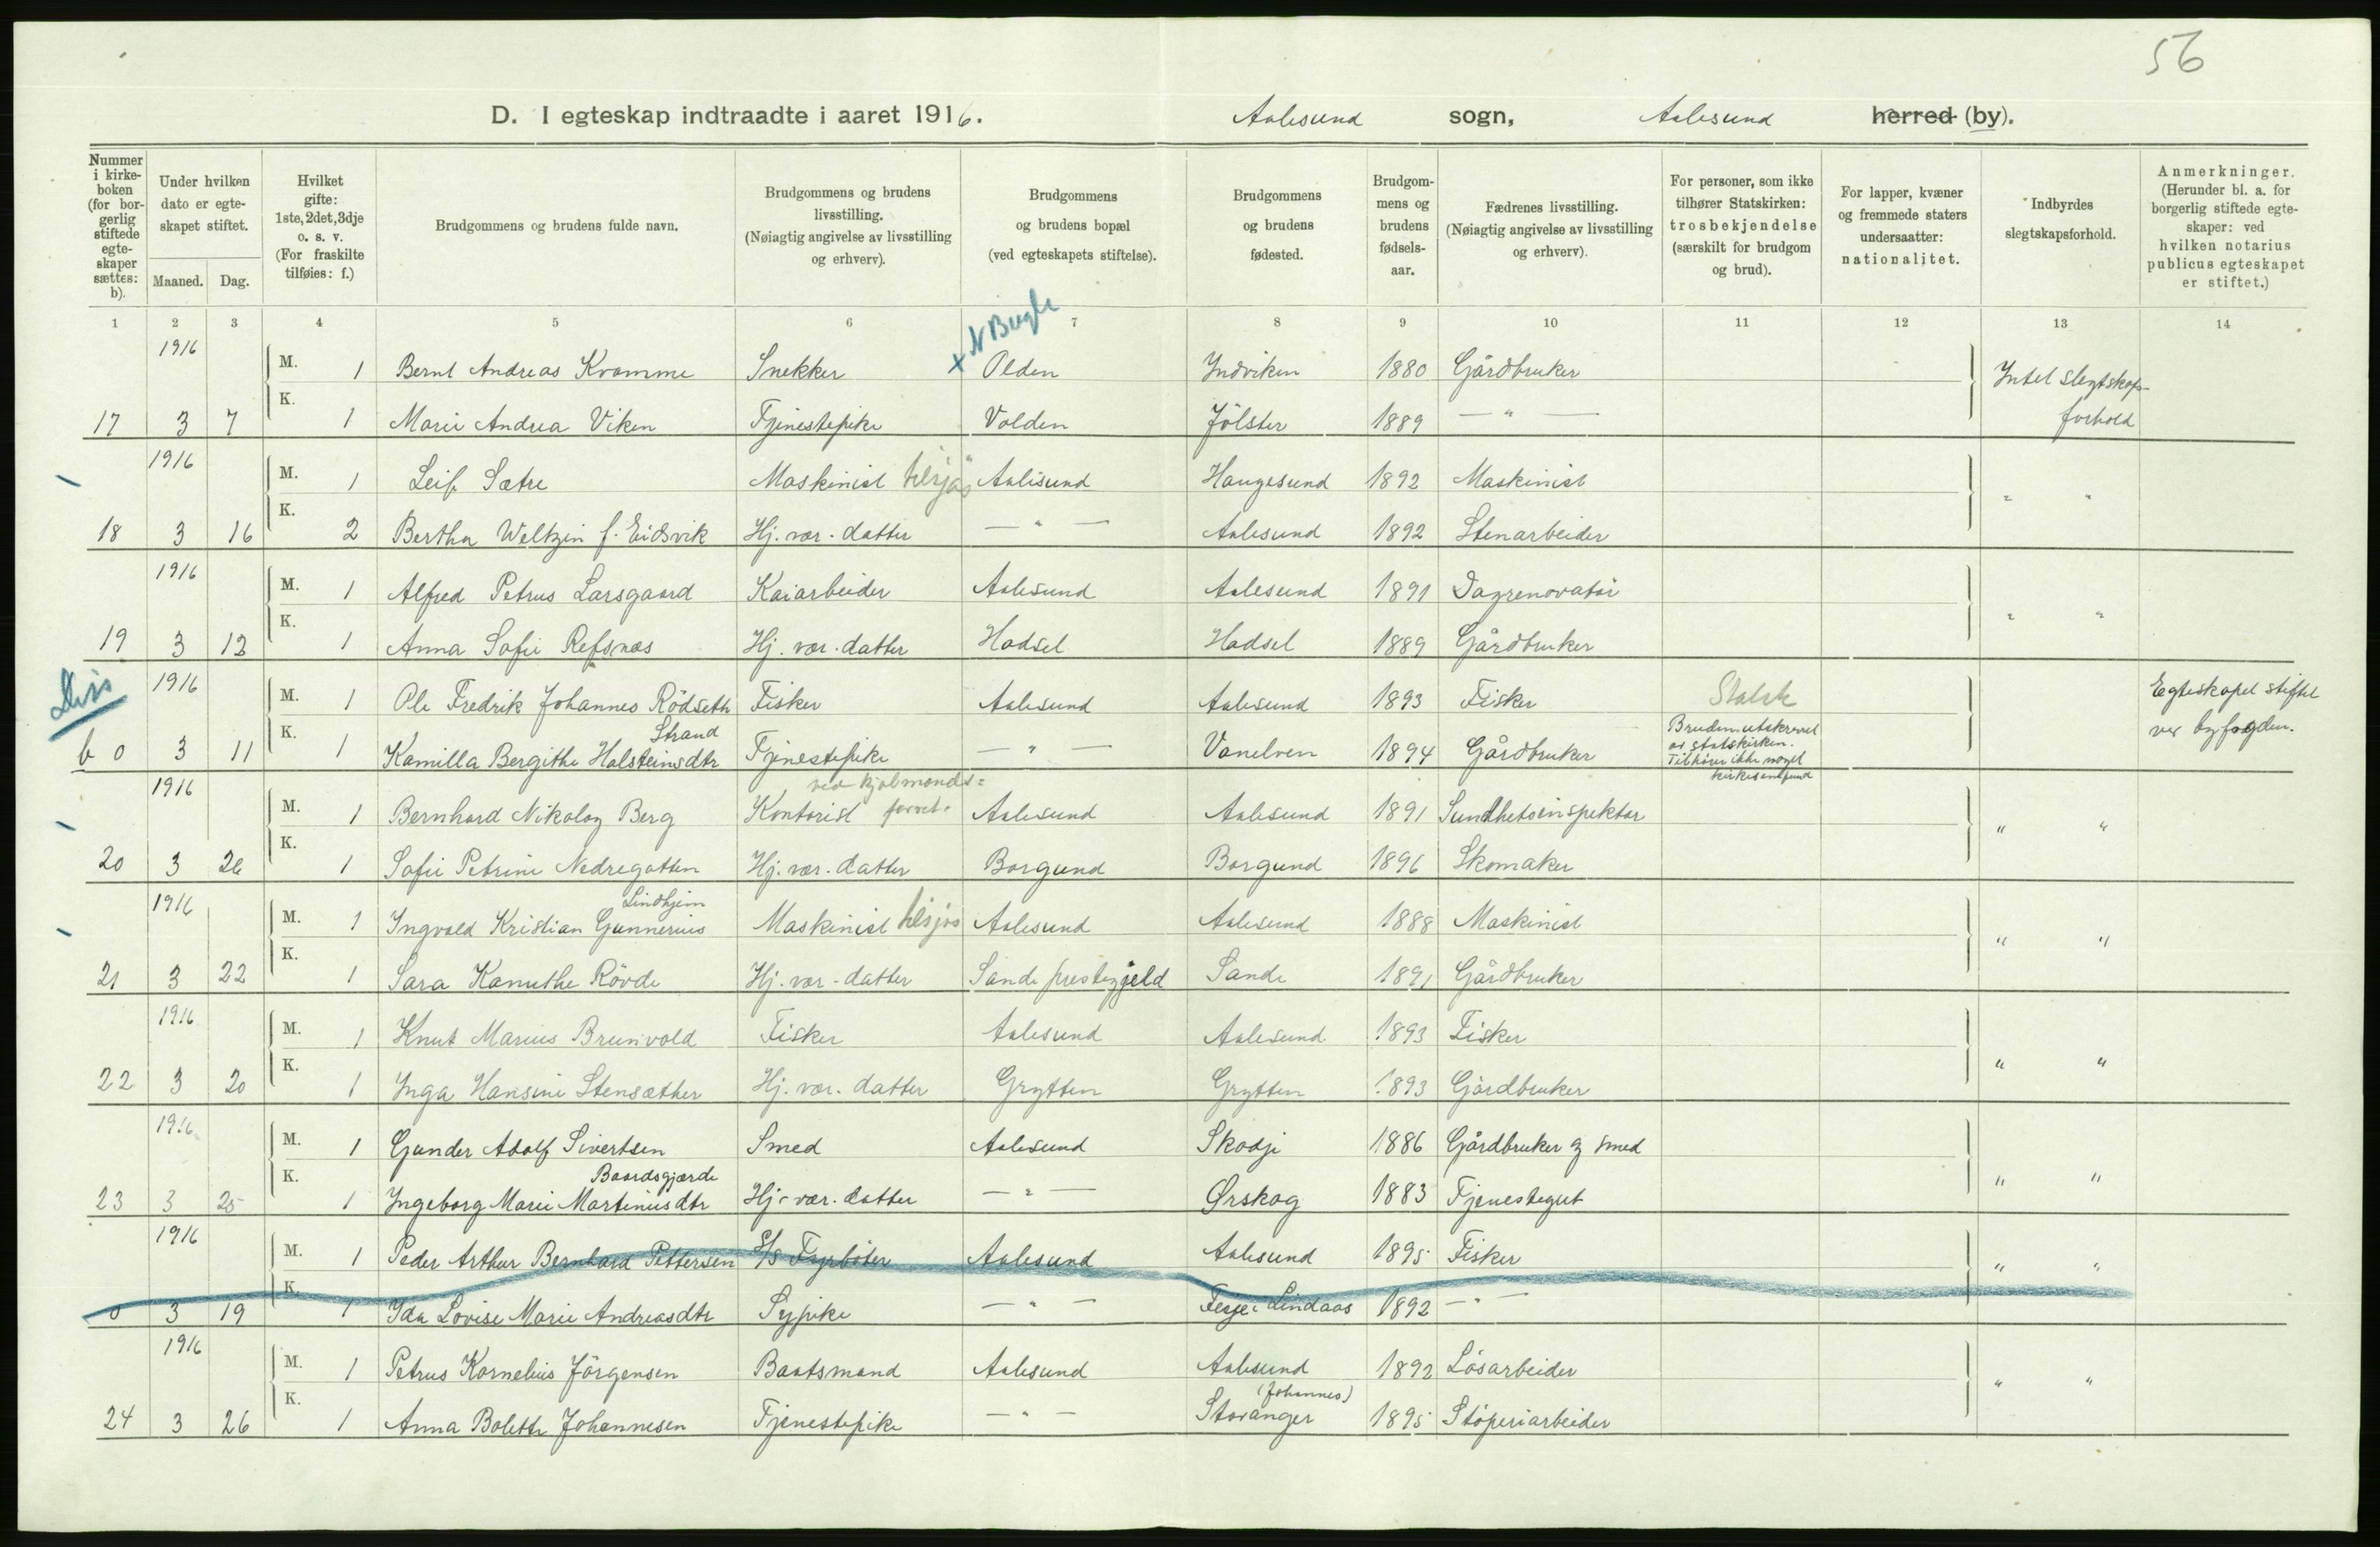 56
D. I egteskap indtraadte i aaret 1916. Aalesund sogn, Aalesund herred (by).
Nummer i kirkeboken (for borgerlig stiftede egteskaper sættes: b).
Under hvilken dato er egteskapet stiftet.
Maaned. Dag.
Hvilket gifte: 1ste, 2det, 3dje o. s. v. (For fraskilte tilføies: f.)
Brudgommens og brudens fulde navn.
Brudgommens og brudens livsstilling. (Nøiagtig angivelse av livsstilling og erhverv).
Brudgommens og brudens bopæl (ved egteskapets stiftelse).
Brudgommens og brudens fødested.
Brudgommens og brudens fødselsaar.
Fædrenes livsstilling. (Nøiagtig angivelse av livsstilling og erhverv).
For personer, som ikke tilhører Statskirken: trosbekjendelse (særskilt for brudgom og brud).
For lapper, kvæner og fremmede staters undersaatter: nationalitet.
Indbyrdes slegtskapsforhold.
Anmerkninger. (Herunder bl. a. for borgerlig stiftede egteskaper: ved hvilken notarius publicus egteskapet er stiftet.)
1 2 3 4 5 6 7 8 9 10 11 12 13 14
1916 M. 1 Bernt Andreas Kvamme Snekker x Olden Indviken 1880 Gårdbruker Intet slegtskap-
17 3 7 K. 1 Marie Andrea Viken Tjenestepike Volden Jölster 1889 — " — forhold
1916 M. 1 Leif Sætre Maskinist tilsjøs Aalesund Haugesund 1892 Maskinist " "
18 3 16 K. 2 Bertha Weltzin f. Eidsvik Hj. vær. datter — " — Aalesund 1892 Stenarbeider
1916 M. 1 Alfred Petrus Larsgaard Kaiarbeider Aalesund Aalesund 1891 Dagrenovatör " "
19 3 12 K. 1 Anna Sofie Refsnæs Hj. vær. datter Hadsel Hadsel 1889 Gårdbruker
Diss 1916 M. 1 Ole Fredrik Johannes Rödseth Fisker Aalesund Aalesund 1893 Fisker Statsk Egteskapet stiftet
b 0 3 11 K. 1 Kamilla Bergithe Halsteinsdtr Strand Tjenestepike — " — Vanelven 1894 Gårdbruker Bruden utskrevet av statskirken. Tilhører ikke noget kirkesamfund ved byfogden.
1916 M. 1 Bernhard Nikolay Berg Kontorist ved kjølmands= forret. Aalesund Aalesund 1891 Sundhetsinspektør " "
20 3 26 K. 1 Sofie Petrine Nedregotten Hj. vær. datter Borgund Borgund 1896 Skomaker
1916 M. 1 Ingvald Kristian Gunnerius Lindhjem Maskinist tilsjøs Aalesund Aalesund 1888 Maskinist " "
21 3 22 K. 1 Sara Kanuthe Rövde Hj. vær. datter Sande prestegjeld Sande 1891 Gårdbruker
1916 M. 1 Knut Marius Brunvold Fisker Aalesund Aalesund 1893 Fisker " "
22 3 20 K. 1 Inga Hansine Stensæther Hj. vær. datter Grytten Grytten 1893 Gårdbruker
1916 M. 1 Gunder Adolf Sivertsen Smed Aalesund Skodje 1886 Gårdbruker og smed " "
23 3 25 K. 1 Ingeborg Marie Martinusdtr Baardsgjærde Hj. vær. datter — " — Ørskog 1883 Tjenestegut
1916 M. 1 Peder Arthur Bernhard Pettersen S/S Fyrböter Aalesund Aalesund 1895 Fisker " "
0 3 19 K. 1 Ida Lovise Marie Andreasdtr Sypike — " — i Lindaas 1892 — " —
1916 M. 1 Petrus Kornelius Jörgensen Baatsmand Aalesund Aalesund 1892 Lösarbeider " "
24 3 26 K. 1 Anna Bolette Johannesen Tjenestepike — " — Stavanger (Johannes) 1895 Stöperiarbeider